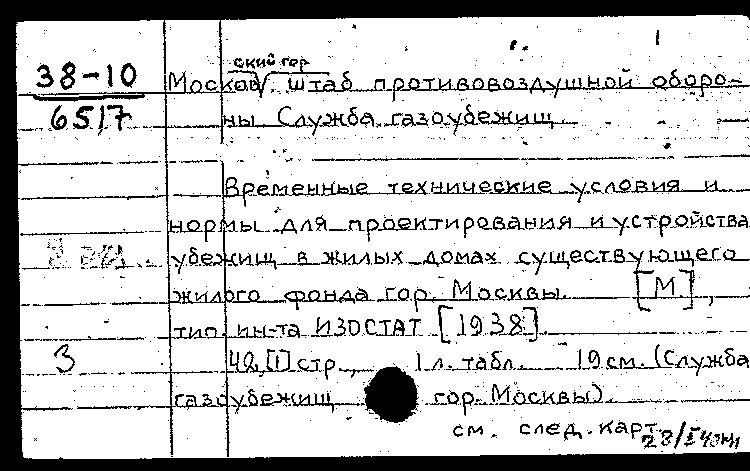 1
38-10
6517
Москов. штаб противовоздушной оборо-
ский гор
ны. Служба газоубежищ.
Временные технические условия и
нормы для проектирования и устройства
убежищ в жилых домах существующего
жилого фонда гор. Москвы. [М.],
тип. ин-та ИЗОСТАТ [1938].
3
42,[1] стр., 1 л. табл. 19 см. (Служба
газоубежищ гор. Москвы).
см. след. карт.